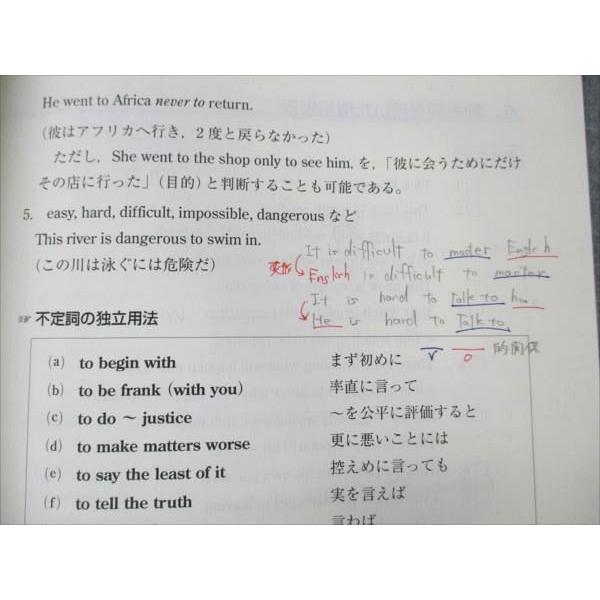 He went to Africa never to return.
(彼はアフリカへ行き，２度と戻らなかった)
ただし，She went to the shop only to see him. を，「彼に会うためにだけ
その店に行った」(目的) と判断することも可能である。
5. easy, hard, difficult, impossible, dangerous など
This river is dangerous to swim in.
(この川は泳ぐには危険だ)
It is difficult to master English
変形 English is difficult to master
It is hard to talk to him.
He is hard to talk to
V O 的関係
☞ 不定詞の独立用法
(a) to begin with まず初めに
(b) to be frank (with you) 率直に言って
(c) to do ～ justice ～を公平に評価すると
(d) to make matters worse 更に悪いことには
(e) to say the least of it 控えめに言っても
(f) to tell the truth 実を言えば
言わば